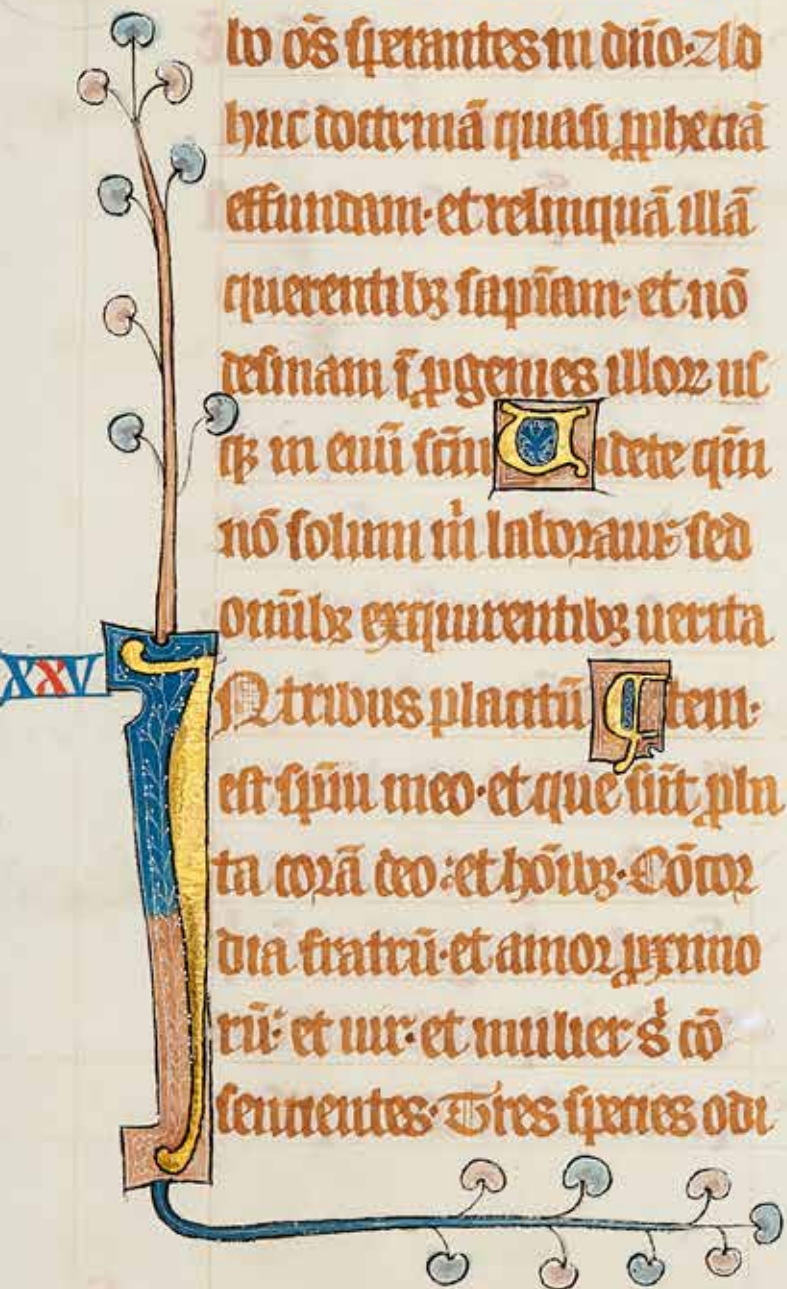 bo oẽs sperantes in dño. Ad
huc doctrinã quasi ꝓphetiã
effundam. et relinquã illã
querentibꝫ sapĩam. et nõ
desinam ĩ ꝓgenies illoꝝ us
qꝫ in euũ scñu Uidete qm̃
nõ solum m̃ laboraui: sed
omĩbꝫ exquirentibꝫ uerita
XXV IN tribus placitũ ꝗ tem.
est spĩui meo. et que sũt ꝓba
ta corã deo: et hoĩbꝫ. Cõcor
dia fratrũ. et amor ꝓximo
rũ: et uir. et mulier s̉ cõ
sentientes. Tres species odi